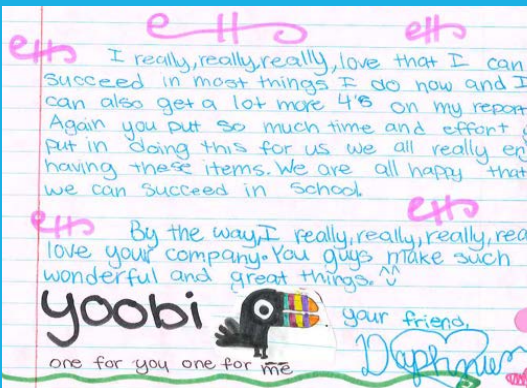 I really, really, really, love that I can
succeed in most things I do now and I
can also get a lot more 4's on my report
Again you put so much time and effort
put in doing this for us we all really
having these items. We are all happy that
we can succeed in school.
By the way, I really, really, really,
love your company. You guys make such
wonderful and great things. ^^
yoobi
your friend,
one for you one for me